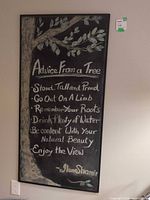 Advice From a Tree
- Stand Tall and Proud
- Go Out On A Limb
- Remember Your Roots
- Drink Plenty of Water
- Be content With Your
Natural Beauty
- Enjoy the View